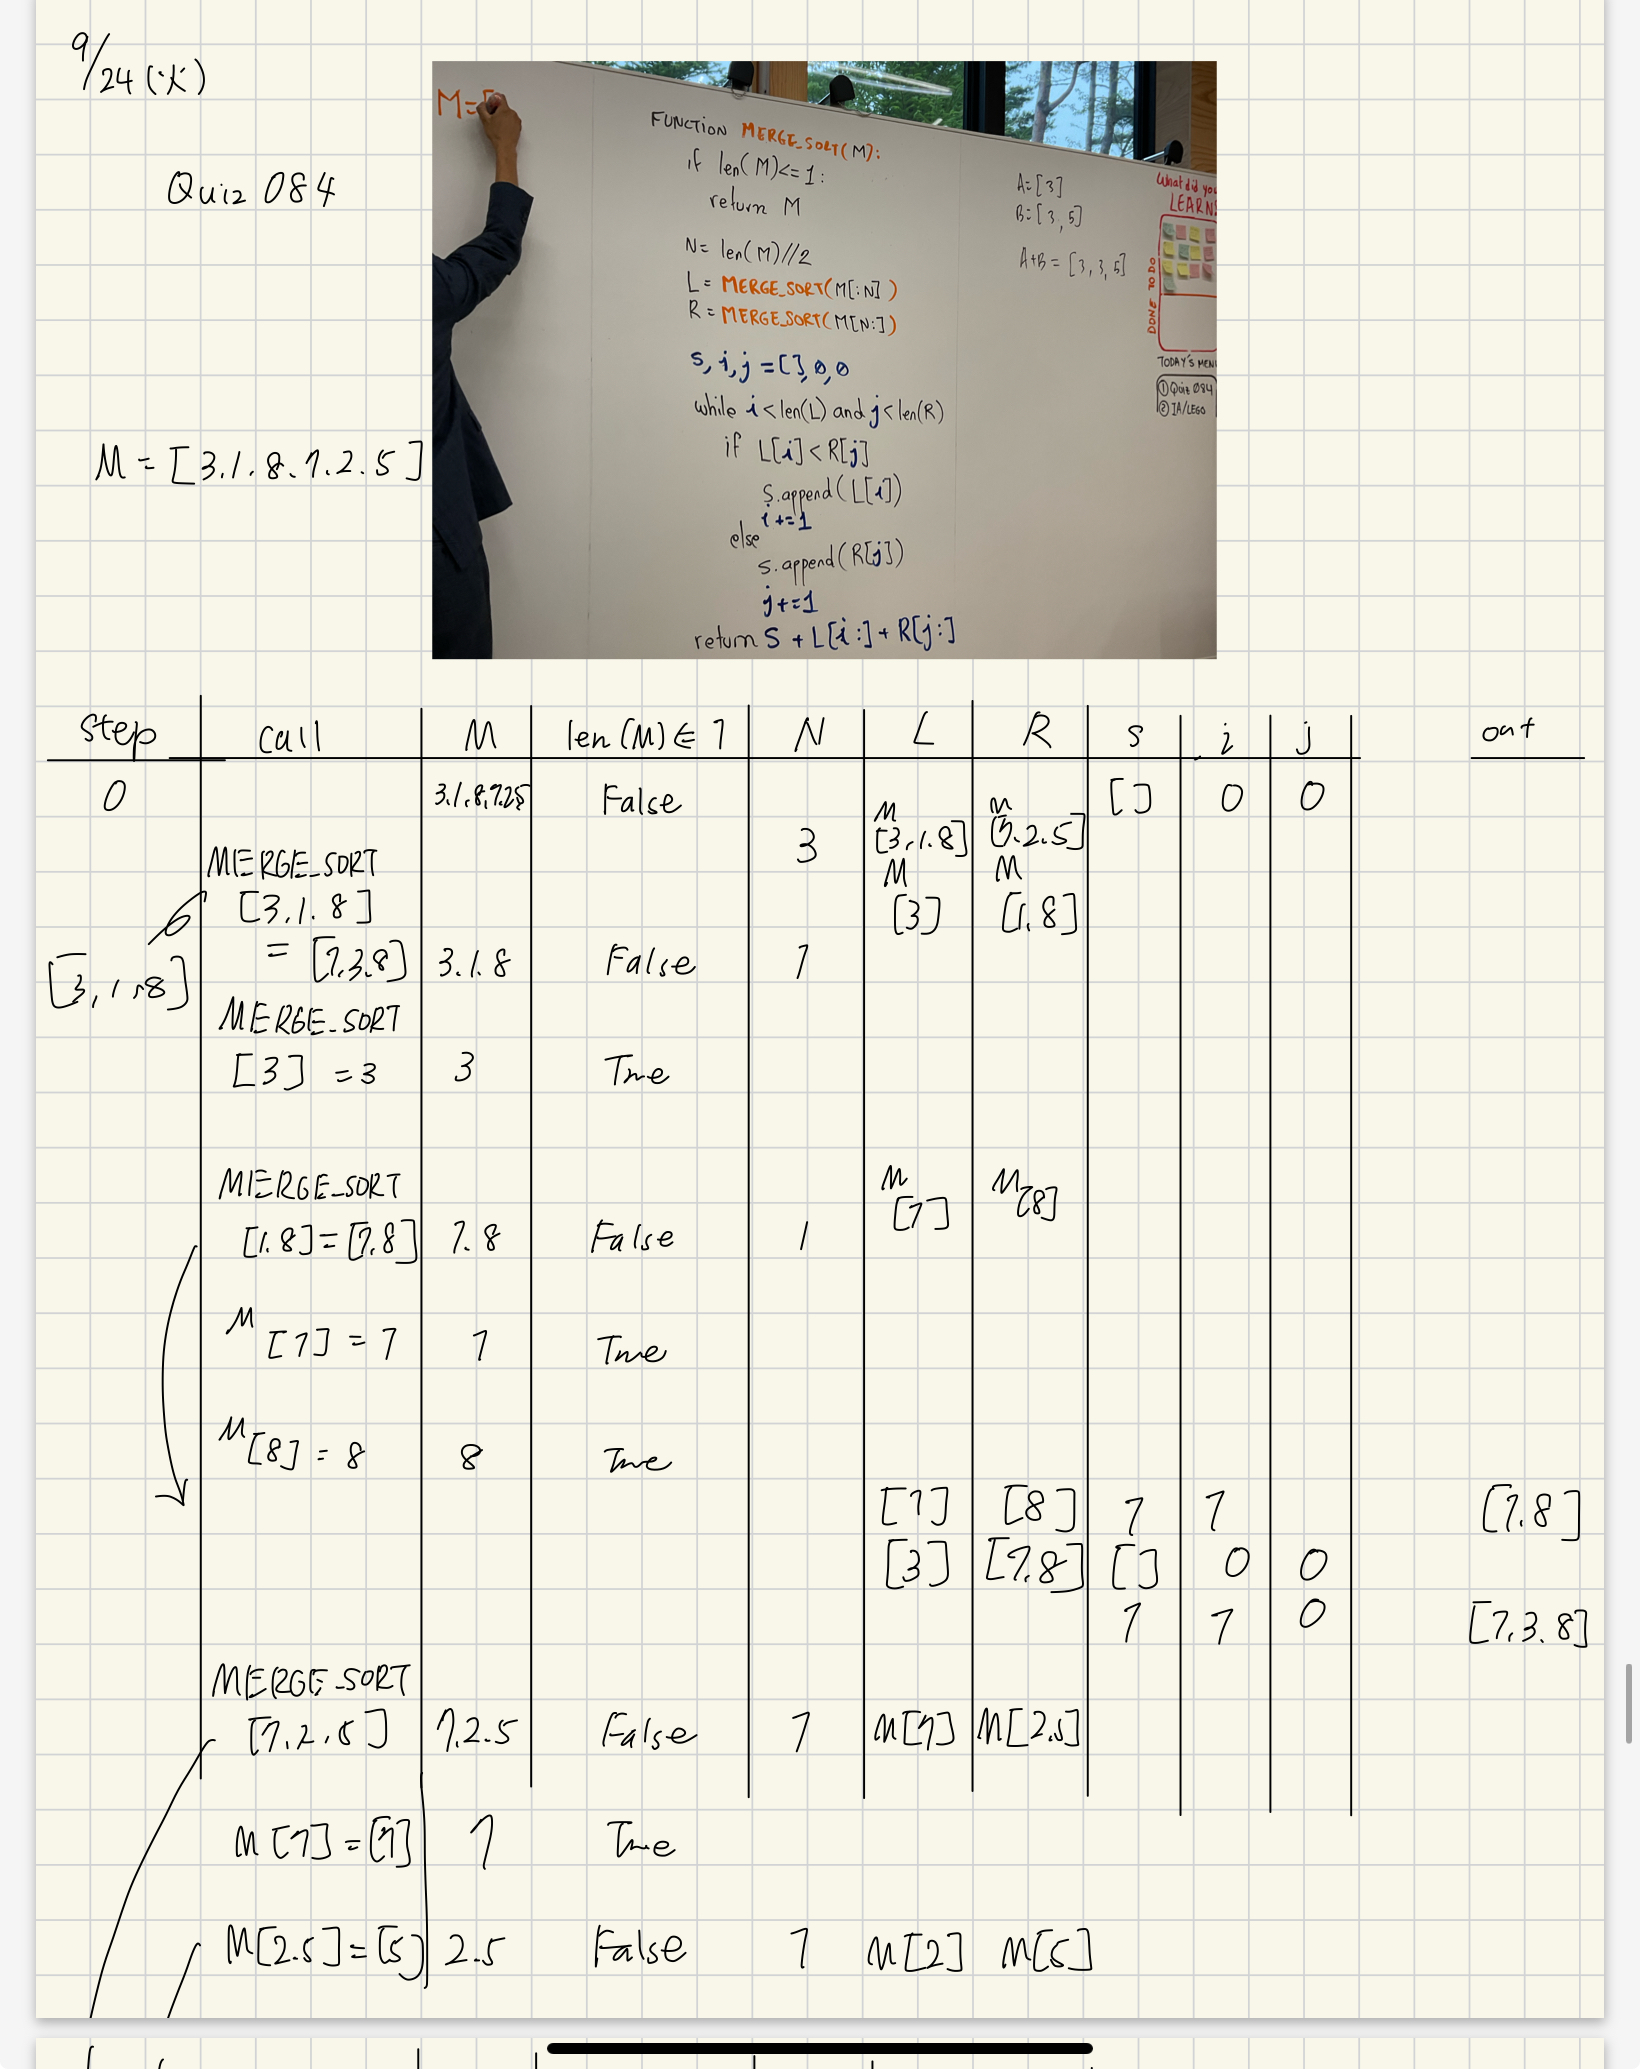 9/24 (火)
Quiz 084
M = [3.1.8.1.2.5]
M=[
FUNCTION MERGE_SORT(M):
if len(M)<=1:
return M
N= len(M)//2
L= MERGE_SORT(M[:N])
R= MERGE_SORT(M[N:])
s,i,j =[],0,0
while i<len(L) and j<len(R)
if L[i]<R[j]
s.append(L[i])
i+=1
else
s.append(R[j])
j+=1
return S + L[i:]+R[j:]
A=[3]
B=[3,5]
A+B = [3,3,5]
What did you
LEARN
DONE TO DO
TODAY'S MEN
① Quiz 084
② IA/LEGO
step call M len(M) ∈ 1 N L R s i j out
0 3.1.8.1.2.5 False [] 0 0
M M
3 [3,1.8] [1.2.5]
MERGE_SORT M M
[3.1.8] [3] [1.8]
= [1.3.8] 3.1.8 False 1
[3,1,8]
MERGE_SORT
[3] =3 3 True
MERGE_SORT M M[8]
[1]
[1.8]=[1.8] 1.8 False 1
M
[1] = 1 1 True
M[8] = 8 8 True
[1] [8] 1 1 [1.8]
[3] [1.8] [] 0 0
1 1 0 [1.3.8]
MERGE_SORT
[1.2.5] 1.2.5 False 1 M[1] M[2.5]
M[1]=[1] 1 True
M[2.5]=[5] 2.5 False 1 M[2] M[5]